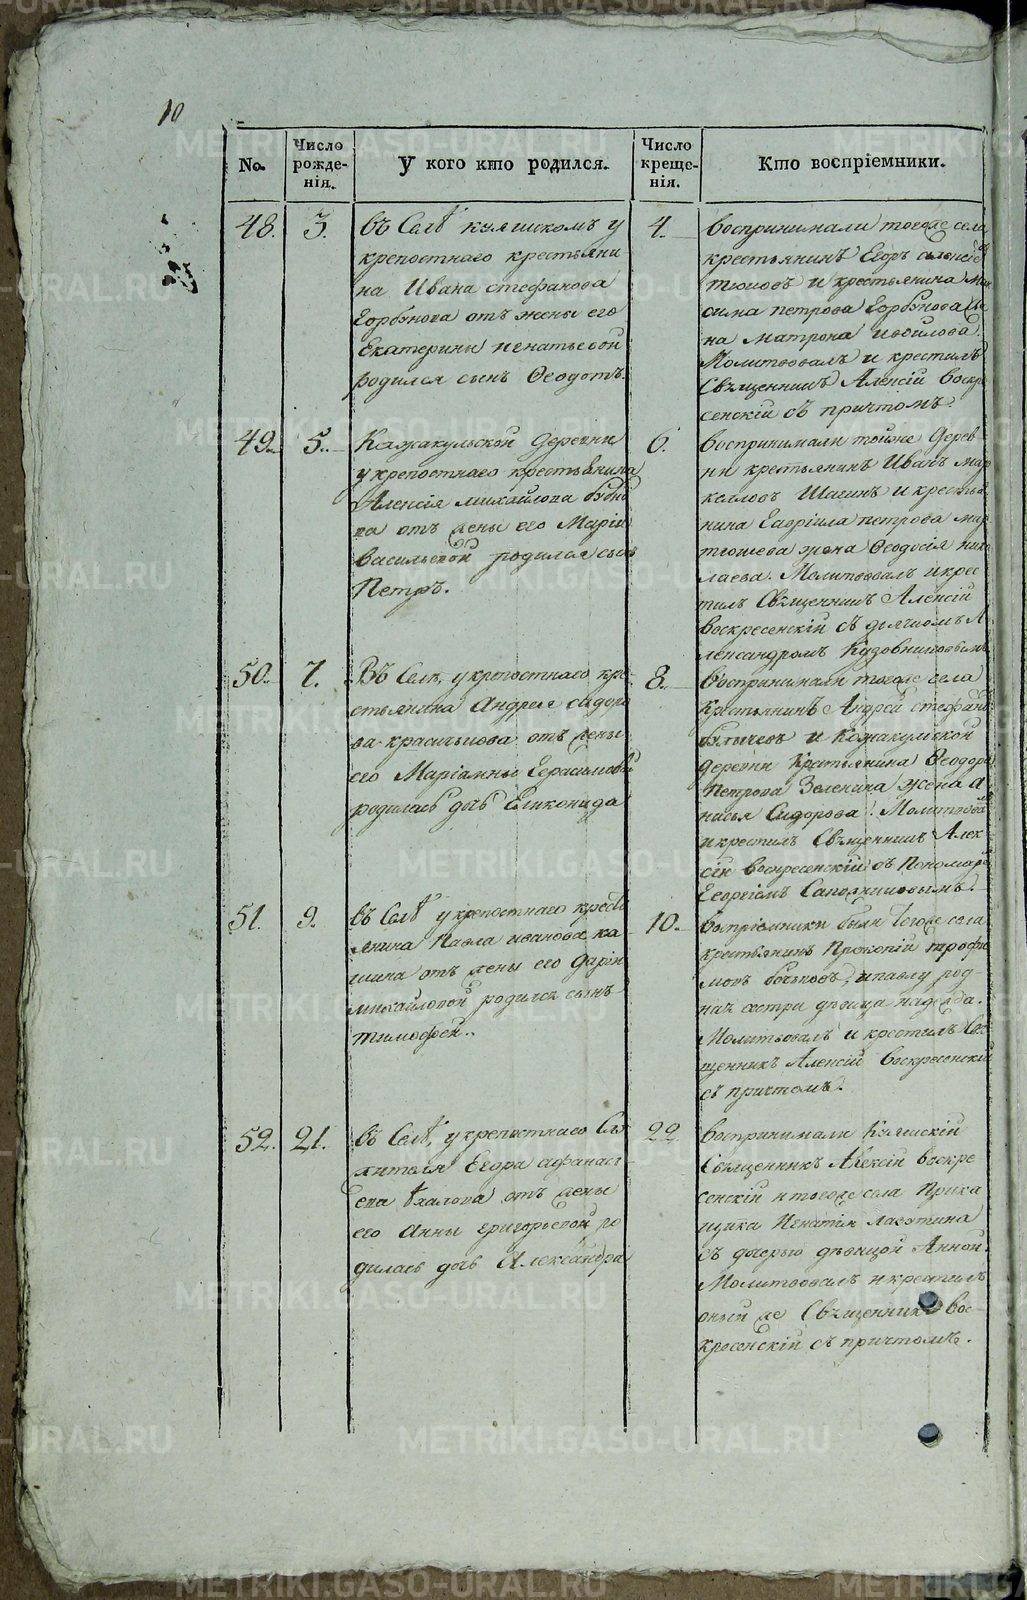 10
No.
Число рожде-нія.
У кого кто родился.
Число креще-нія.
Кто воспріемники.
48.
3.
въ Селѣ куяшскомъ у
крепостнаго крестьяни
на Ивана стефанова
Горбунова отъ жены его
Екатерины игнатьевой
родился сынъ Ѳеодотъ.
4.
воспринимали тогоже села
крестьянинъ Егоръ
и крестьянина Мак
сима петрова Горбунова
на матрона
Молитвовалъ и крестилъ
Священникъ Алексій Воскре
сенскій съ причтомъ.
49.
5.
Кажакульской деревни
у крепостнаго крестьянина
Алексія михайлова
ва отъ жены его Маріи
васильевой родился сынъ
Петръ.
6.
воспринимали тойже дерев
ни крестьянинъ Иванъ мар
келловъ Шагинъ и крестья
нина Гавріила петрова мар
тюшева жена Ѳеодосія нико
лаева. Молитвовалъ и крес
тилъ Священникъ Алексій
воскресенскій съ дьячкомъ А
лександромъ
50.
7.
Въ Селѣ, у крепостнаго кре
стьянина Андрея сидоро
ва красильнова отъ жены
его Маріамны Герасимовой
родилась дочь Еликонида
8.
Воспринимали тогоже села
Крестьянинъ Андрей стефановъ
и Кожакулской
деревни Крестьянина Ѳеодора
Петрова Зеленина жена а
нисья Сидорова. Молитвовалъ
и крестилъ Священникъ Алек
сій воскресенскій съ Пономаремъ
Георгіемъ Сапожниковымъ.
51.
9.
въ Селѣ у крепостнаго кресть
янина Павла иванова ка
шина отъ жены его дарьи
михайловой родился сынъ
тимофей.
10.
воспріемники были тогоже села
крестьянинъ Прокопій трофи
мовъ и павлу род-
ная сестра дѣвица надежда.
Молитвовалъ и крестилъ Свя
щенникъ Алексій Воскресенскій
съ причтомъ.
52.
21.
въ Селѣ, у крепостнаго Слу
жителя Егора афанась
ева отъ жены
его Анны григорьевой ро
дилась дочь Александра
22
воспринимали Куяшскій
Священникъ Алексій воскре
сенскій и тогоже села Прика
щика Игнатія
съ дочерью дѣвицой Анной.
Молитвовалъ и крестилъ
оный же Священникъ Вос-
кресенскій съ причтомъ.
METRIKI.GASO-URAL.RU